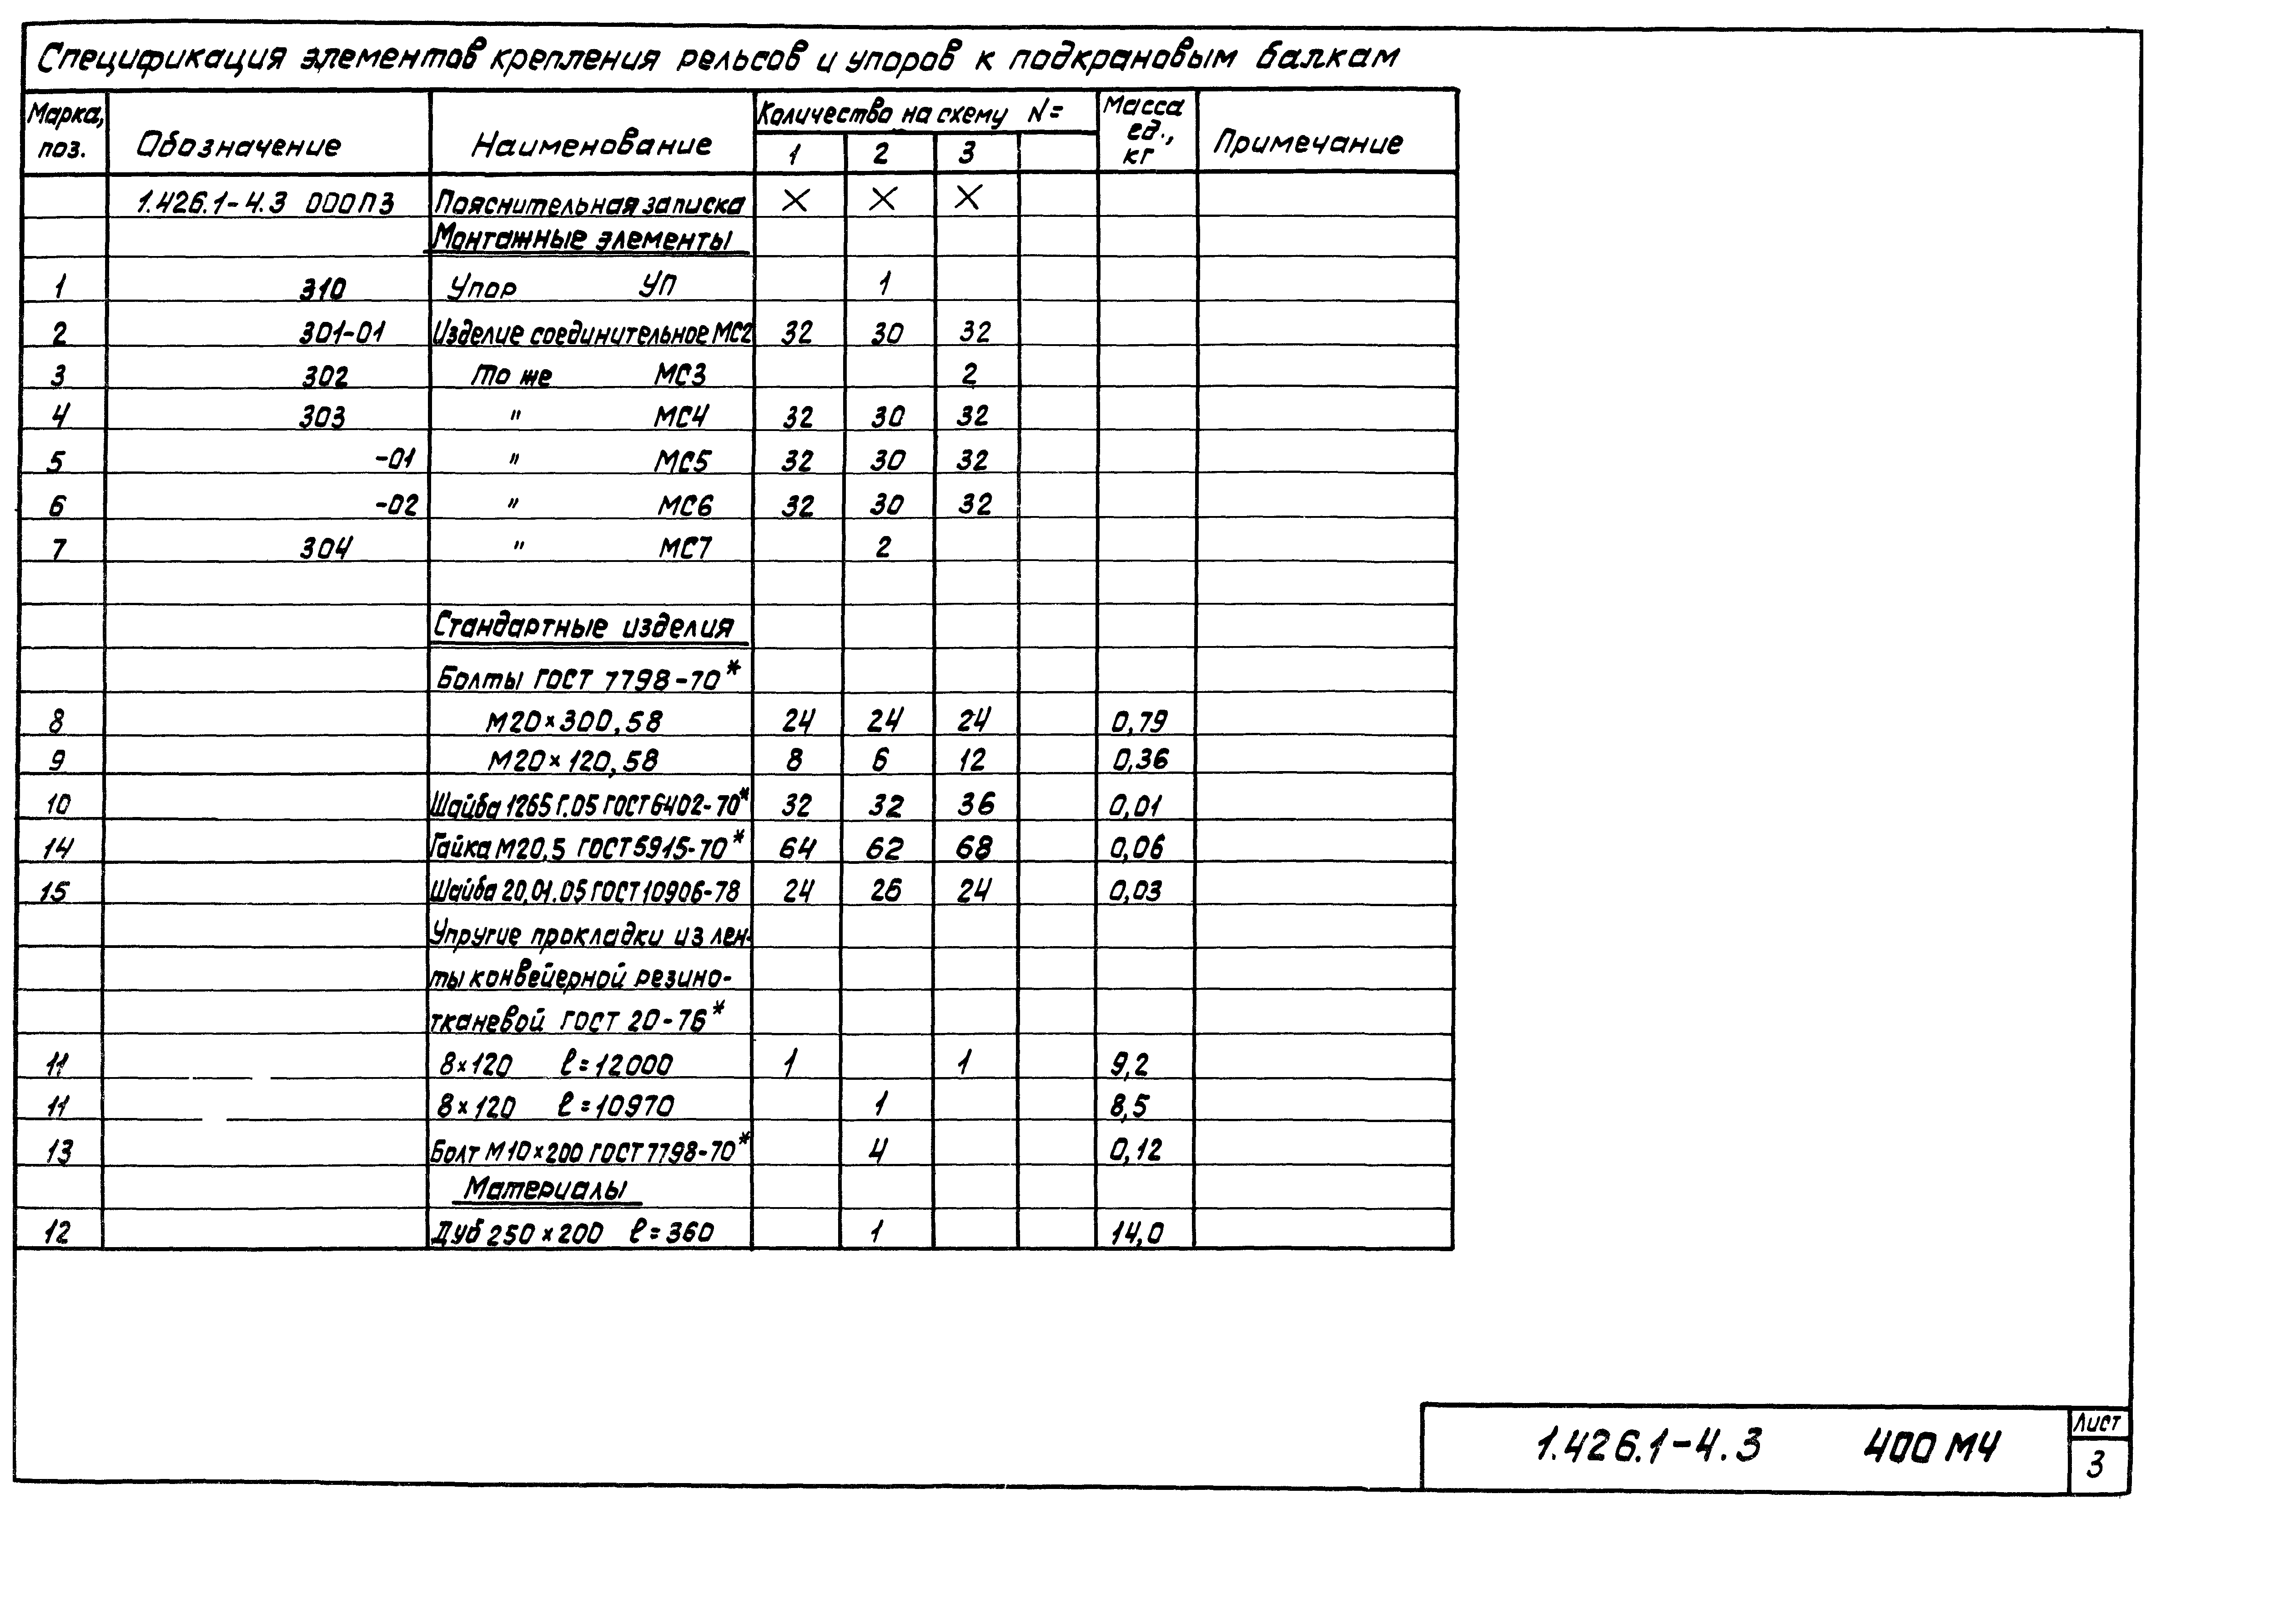 Спецификация элементов крепления рельсов и упоров к подкрановым балкам
Марка, поз. Обозначение Наименование Количество на схему N= Масса ед., кг Примечание
1 2 3
1.426.1-4.3 000ПЗ Пояснительная записка × × ×
Монтажные элементы
1 310 Упор УП 1
2 301-01 Изделие соединительное МС2 32 30 32
3 302 То же МС3 2
4 303 " МС4 32 30 32
5 -01 " МС5 32 30 32
6 -02 " МС6 32 30 32
7 304 " МС7 2
Стандартные изделия
Болты ГОСТ 7798-70*
8 М20×300,58 24 24 24 0,79
9 М20×120,58 8 6 12 0,36
10 Шайба 1265 Г.05 ГОСТ 6402-70* 32 32 36 0,01
14 Гайка М20,5 ГОСТ 5915-70* 64 62 68 0,06
15 Шайба 20,01.05 ГОСТ 10906-78 24 26 24 0,03
Упругие прокладки из лен-
ты конвейерной резино-
тканевой ГОСТ 20-76*
11 8×120 ℓ=12000 1 1 9,2
11 8×120 ℓ=10970 1 8,5
13 Болт М10×200 ГОСТ 7798-70* 4 0,12
Материалы
12 Дуб 250×200 ℓ=360 1 14,0
1.426.1-4.3 400 МЧ
Лист
3